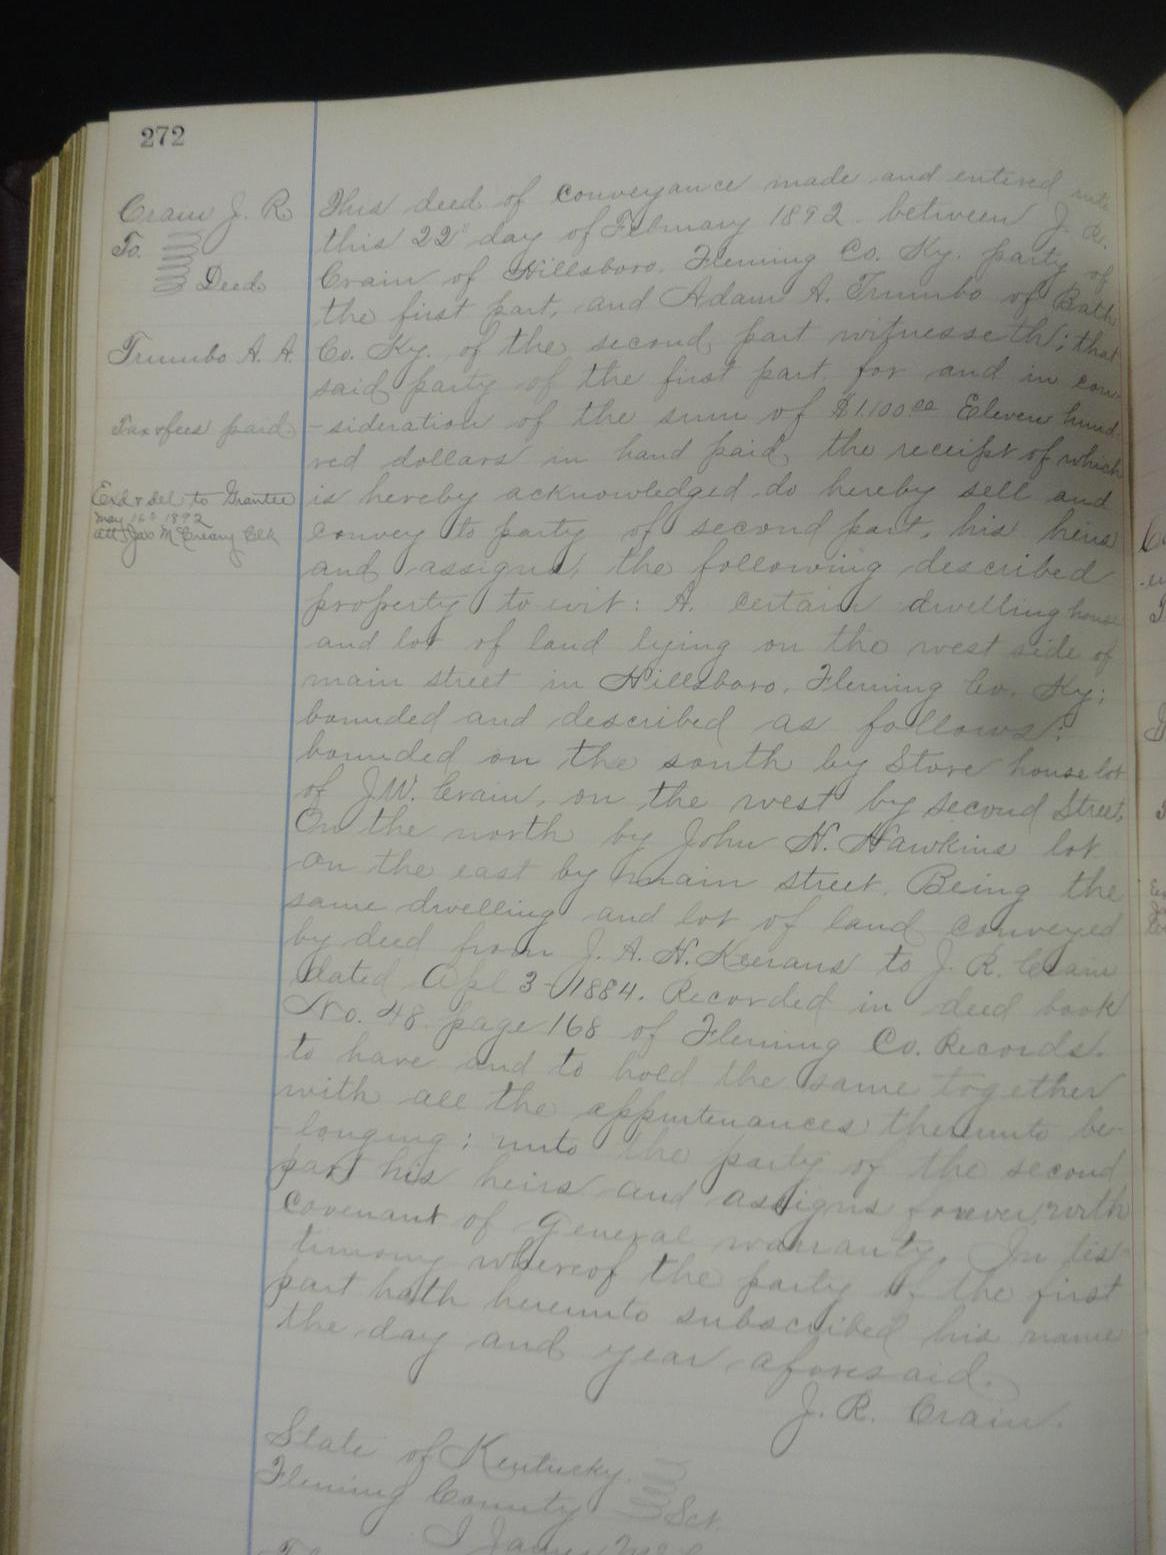 272
Crain J. R.
To.
Deed
Trumbo A. A.
Tax & fees paid
Exd & del to Grantee
May 16th 1892
att Jas McCreary Clk
This deed of conveyance made and entered into
this 22d day of February 1892 between J. R.
Crain of Hillsboro, Fleming Co. Ky. party of
the first part, and Adam A. Trumbo of Bath
Co. Ky. of the second part witnesseth; that
said party of the first part for and in con-
-sideration of the sum of $1100.00 Eleven hund-
red dollars in hand paid the receipt of which
is hereby acknowledged do hereby sell and
convey to party of second part, his heirs
and assigns, the following described
property to wit: A. certain dwelling house
and lot of land lying on the west side of
main street in Hillsboro, Fleming Co. Ky;
bounded and described as follows:
bounded on the south by Store house lot
of J.W. Crain, on the west by second Street,
On the north by John H. Hawkins lot
on the east by main street. Being the
same dwelling and lot of land conveyed
by deed from J. A. H. Keerans to J. R. Crain
dated Apl 3-1884. Recorded in deed book
No. 48 page 168 of Fleming Co. Records.
to have and to hold the same together
with all the appurtenances thereunto be-
-longing; unto the party of the second
part his heirs and assigns forever, with
covenant of general warranty. In tes-
timony whereof the party of the first
part hath hereunto subscribed his name
the day and year aforesaid.
J. R. Crain.
State of Kentucky
Fleming County Sct.
I James